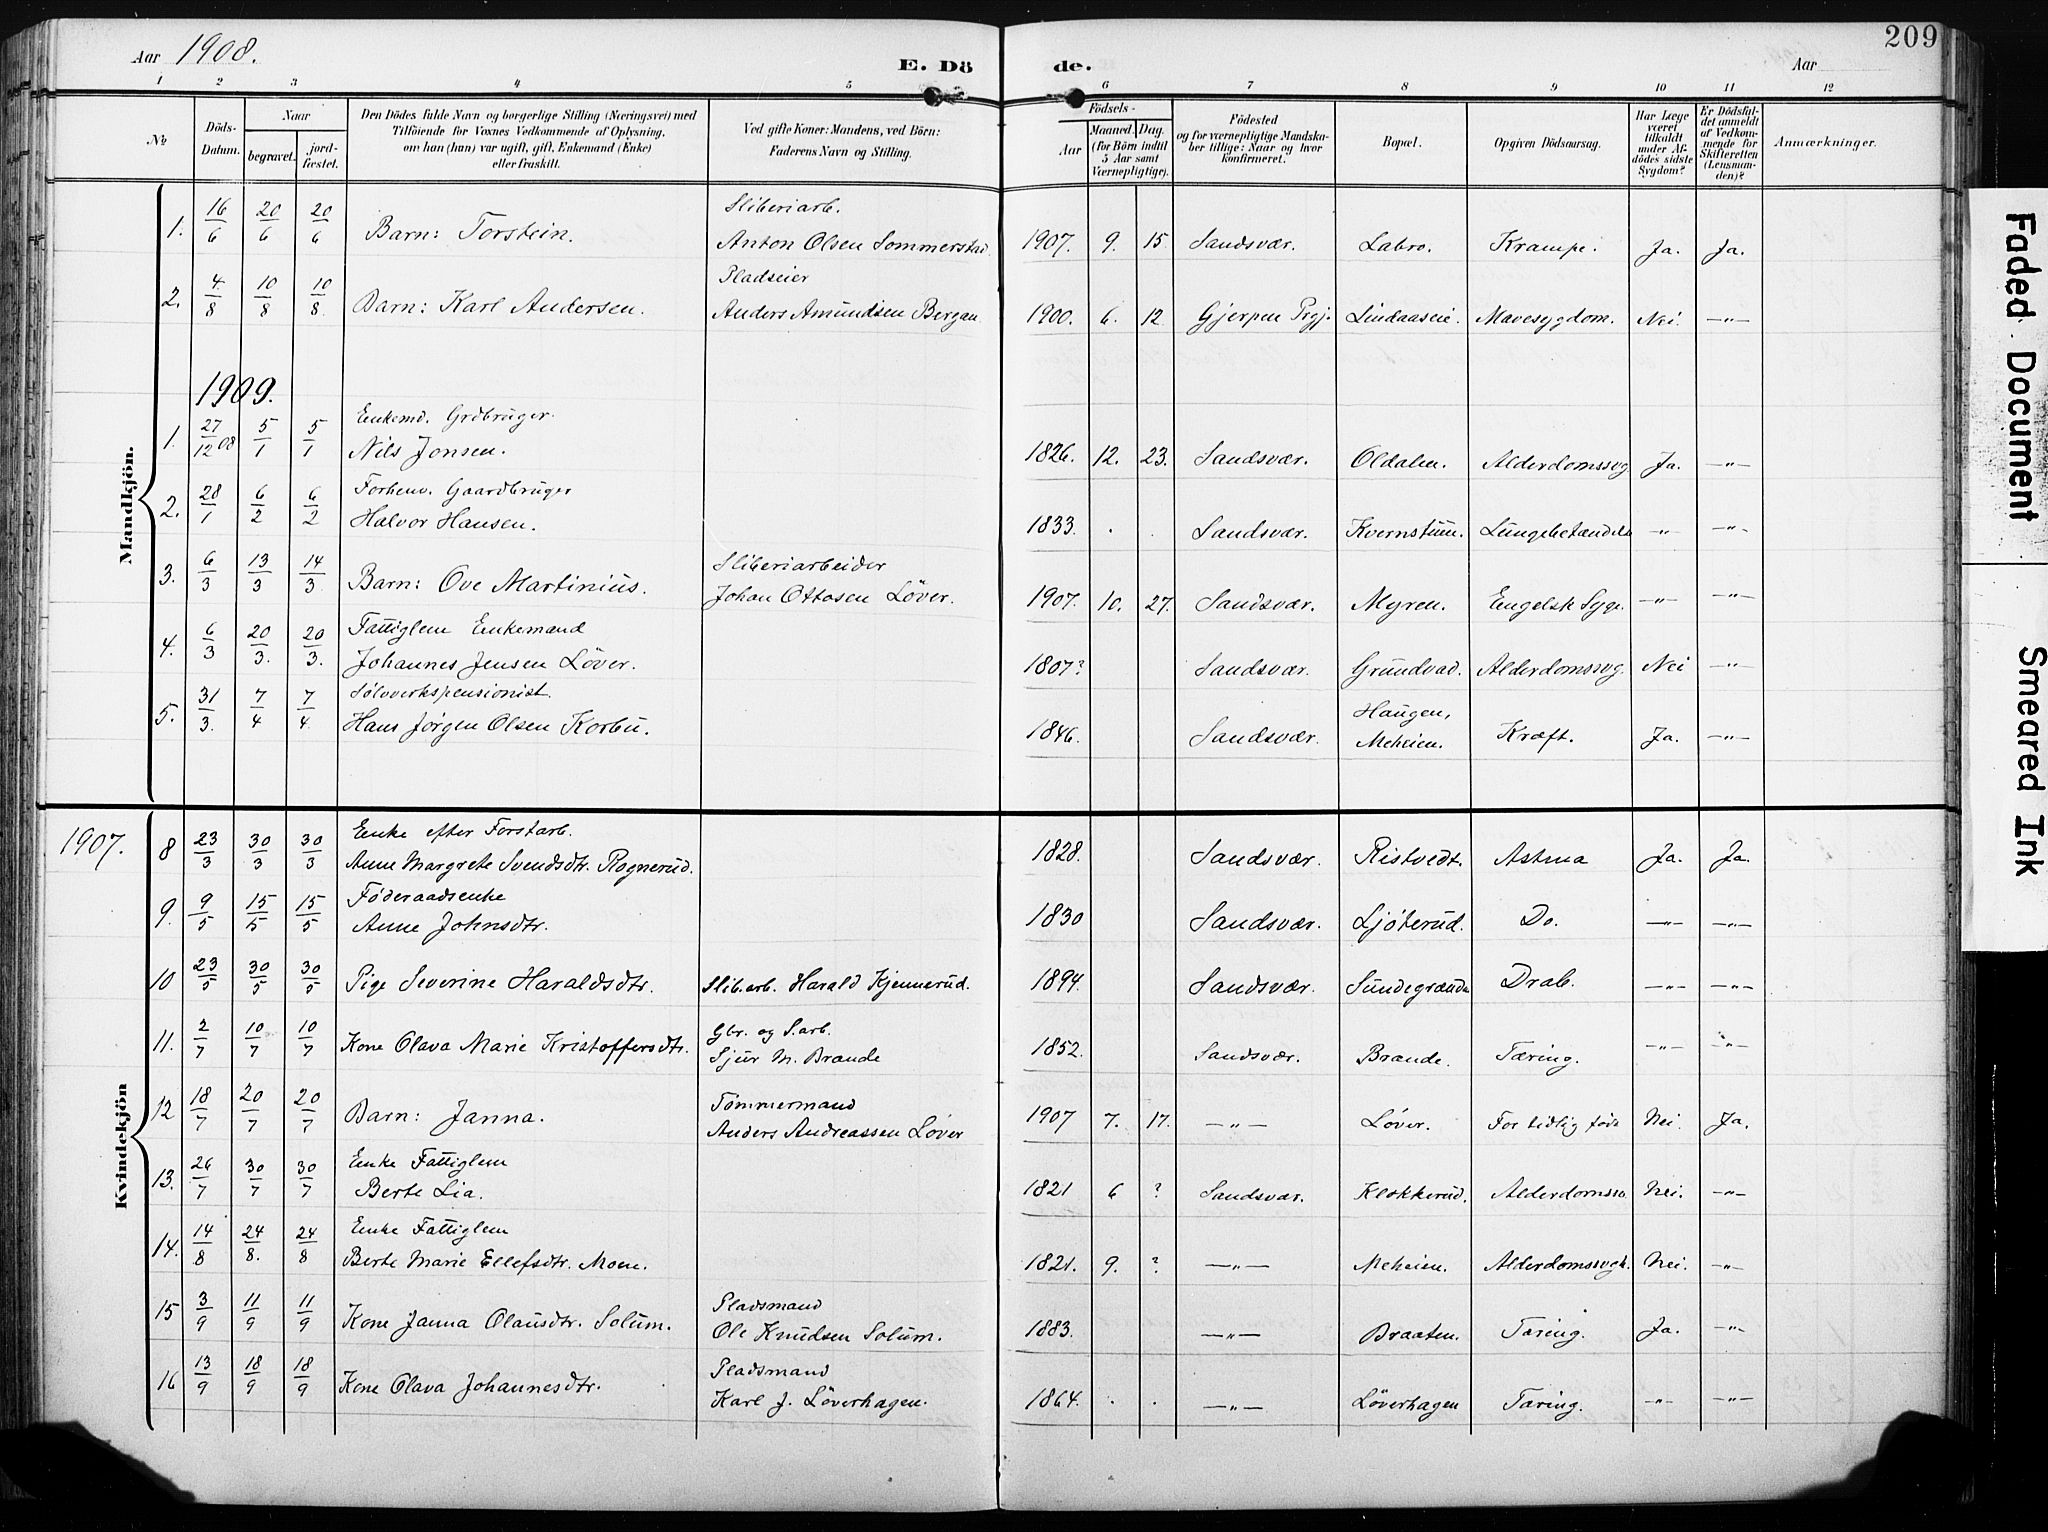 209
Aar 1908. E. Dö de. Aar
1 2 3 4 5 6 7 8 9 10 11 12
№ Döds-Datum. Naar begravet. jord-fæstet. Den Dödes fulde Navn og borgerlige Stilling (Næringsvei) med Tilföiende for Voxnes Vedkommende af Oplysning, om han (hun) var ugift, gift, Enkemand (Enke) eller fraskilt. Ved gifte Koner: Mandens, ved Börn: Faderens Navn og Stilling. Födsels- Aar Maaned. Dag. (for Börn indtil 5 Aar samt Værnepligtige). Födested og for værnepligtige Mandskaber tillige: Naar og hvor konfirmeret. Bopæl. Opgiven Dödsaarsag. Har Læge været tilkaldt under Afdödes sidste Sygdom? Er Dödsfaldet anmeldt af Vedkommende for Skifteretten (Lensmanden)? Anmærkninger.
Mandkjön.
Sliberiarb.
1. 16/6 20/6 20/6 Barn: Torstein. Anton Olsen Sommerstad 1907. 9. 15. Sandsvær. Labro. Krampe. Ja. Ja.
Pladseier
2. 4/8 10/8 10/8 Barn: Karl Andersen. Anders Amundsen Bergan 1900. 6. 12. Gjerpen Prgj. Lindaaseie. Mavesygdom. Nei. —"—
1909.
Enkemd. Grdbruger.
1. 27/12 08 5/1 5/1 Nils Jonsen. 1826. 12. 23. Sandsvær. Oldalen. Alderdomssvg Ja. —"—
Forhenv. Gaardbruger
2. 28/1 6/2 6/2 Halvor Hansen. 1833. . . Sandsvær. Kvernstuen. Lungebetændels —"— —"—
Sliberiarbeider
3. 6/3 13/3 14/3 Barn: Ove Martinius. Johan Ottosen Löver. 1907. 10. 27. Sandsvær. Myren. Engelsk Syge. —"— —"—
Fattiglem Enkemand
4. 6/3 20/3. 20/3. Johannes Jensen Löver. 1807? Sandsvær. Grundvad. Alderdomssvg. Nei —"—
Sølvverkspensionist.
5. 31/3. 7/4 7/4. Hans Jørgen Olsen Korbu. 1846. Sandsvær. Haugen, Meheien. Kræft. Ja. —"—
Kvindekjön
1907.
Enke efter Forstarb.
8 23/3 30/3 30/3 Anne Margrete Svendsdtr. Rognerud. 1828. Sandsvær. Ristvedt. Astma Ja. Ja.
Föderaadsenke
9. 9/5 15/5 15/5 Anne Johnsdtr. 1830 Sandsvær. Ljöterud. Do. —"— —"—
10 23/5 30/5 30/5 Pige Severine Haraldsdtr. Slib.arb. Harald Kjennerud. 1894. Sandsvær. Sundegrænda Drab. —"— —"—
Gbr. og S.arb.
11. 2/7 10/7 10/7 Kone Olava Marie Kristoffersdtr. Sjur M. Brande 1852. Sandsvær. Brande. Tæring. —"— —"—
Tömmermand
12 18/7 20/7 20/7 Barn: Janna. Anders Andreassen Löver 1907 7. 17. —"— Löver. For tidlig föde Nei. Ja.
Enke Fattiglem
13. 26/7 30/7 30/7 Berte Lia. 1821 6 ? Sandsvær. Klokkerud. Alderdomssv. Nei. —"—
Enke Fattiglem
14. 14/8 24/8. 24/8 Berte Marie Ellefsdtr. Moen. 1821. 9. ? —"— Meheien. Alderdomssvgh. Nei. —"—
Pladsmand
15 3/9 11/9 11/9 Kone Janna Olausdtr. Solum. Ole Knudsen Solum. 1883. —"— Braaten. Tæring. Ja. —"—
Pladsmand
16 13/9 18/9 18/9 Kone Olava Johannesdtr. Karl J. Löverhagen. 1864. . . —"— Löverhagen Tæring. —"— —"—
Faded Document
Smeared Ink